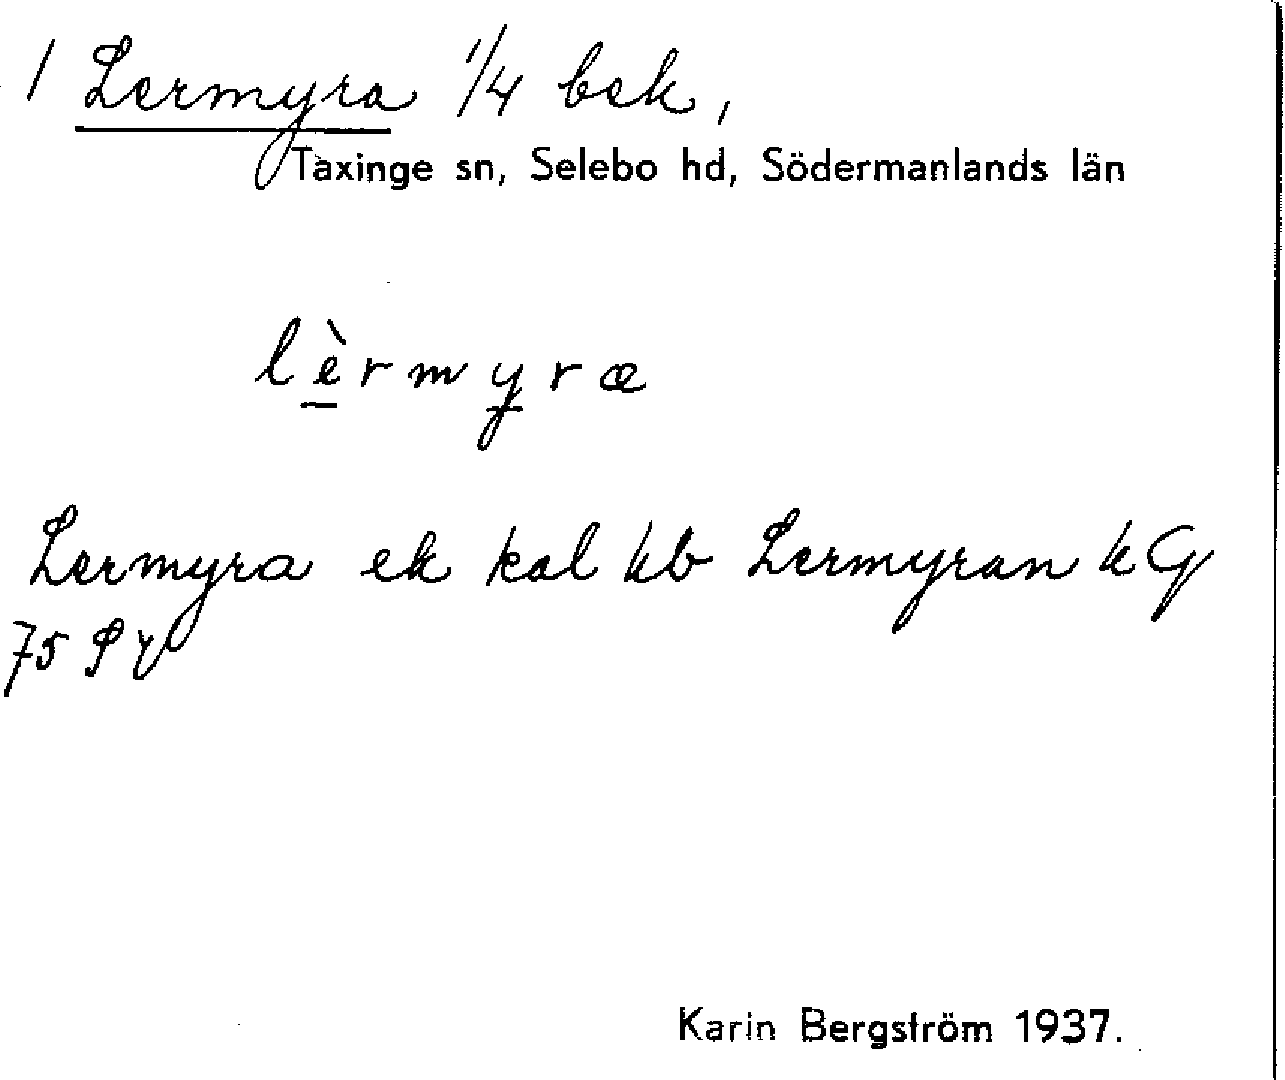 1 Lermyra 1/4 bek,
Taxinge sn, Selebo hd, Södermanlands län
lèrmyra
Lermyra ek kal kb Lermyran k G
75
Karin Bergström 1937.